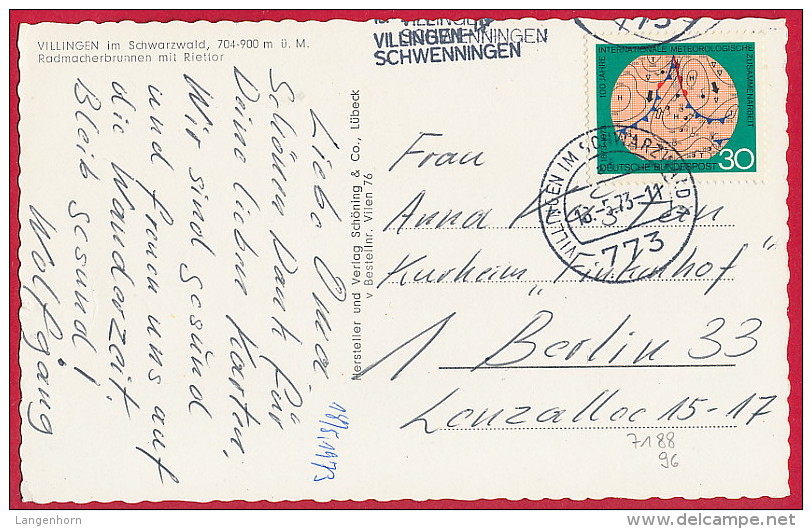 VILLINGEN im Schwarzwald, 704-900 m ü. M.
Radmacherbrunnen mit Riettor
Liebe Oma.
Schönen Dank für
Deine lieben Karten.
Wir sind gesund
und freuen uns auf
die Wanderzeit.
Bleib gesund!
Wolfgang
18/5.1973
Hersteller und Verlag Schöning & Co., Lübeck
v Bestellnr. Vilen 76
VILLINGEN
VILLINGEN
SCHWENNINGEN
100 JAHRE INTERNATIONALE METEOROLOGISCHE ZUSAMMENARBEIT
DEUTSCHE BUNDESPOST 30
VILLINGEN IM SCHWARZWALD
773
Frau
Anna
Kurheim „Finkenhof"
1 Berlin 33
Lenzallee 15-17
7188
96
© Langenhorn
delcampe.net